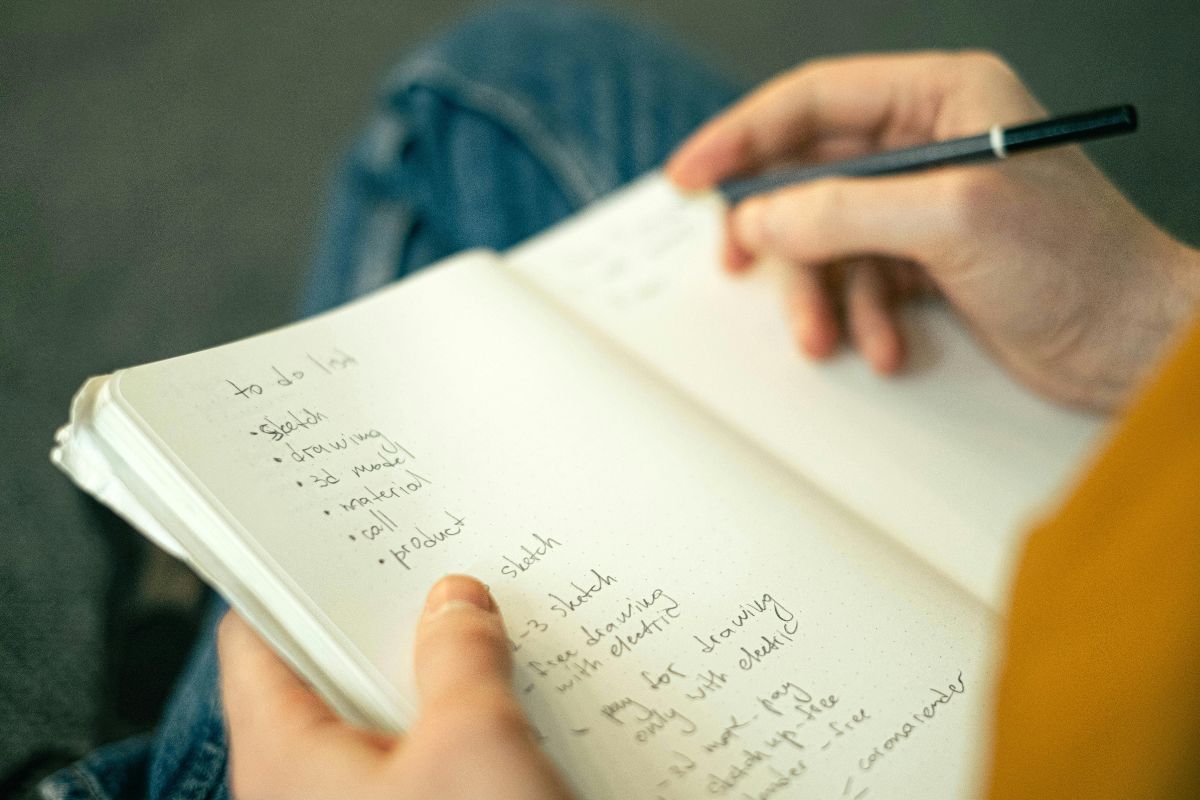 to do list
• sketch
• drawing
• 3d model
• material
• call
• product
sketch
2-3 sketch
- free drawing
with electric
- pay for drawing
only with electric
- 3d mor - pay
sketch up - free
- free
- corona render